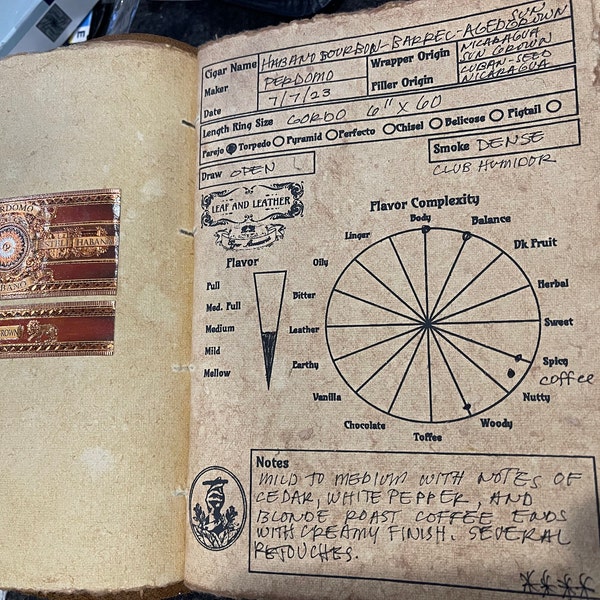 Cigar Name HABANO BOURBON-BARREL-AGED SUN GROWN
Maker PERDOMO
Wrapper Origin NICARAGUA SUN GROWN
Date 7/7/23
Filler Origin CUBAN-SEED NICARAGUA
Length Ring Size GORDO 6" X 60
Parejo Torpedo Pyramid Perfecto Chisel Belicoso Pigtail
Draw OPEN
Smoke DENSE
CLUB HUMIDOR
LEAF AND LEATHER
Flavor Complexity
Body
Balance
Linger
Dk Fruit
Oily
Herbal
Flavor
Full
Bitter
Sweet
Med. Full
Medium
Leather
Mild
Earthy
Spicy
coffee
Mellow
Vanilla
Nutty
Chocolate
Woody
Toffee
Notes
MILD TO MEDIUM WITH NOTES OF
CEDAR, WHITE PEPPER, AND
BLONDE ROAST COFFEE ENDS
WITH CREAMY FINISH. SEVERAL
RETOUCHES.
RDOMO
HABAN
BANO
ROWN